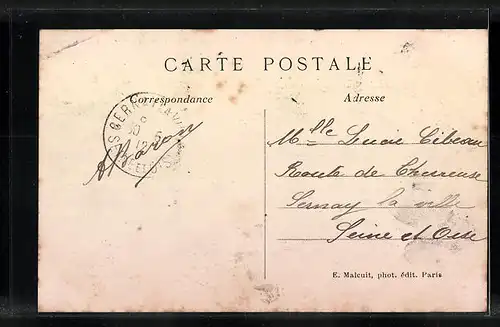 CARTE POSTALE
Correspondance
Adresse
A Baron
Mlle Lucie Cibeau
Route de Chevreuse
Sernay la ville
Seine et Oise
E. Malcuit, phot. édit. Paris